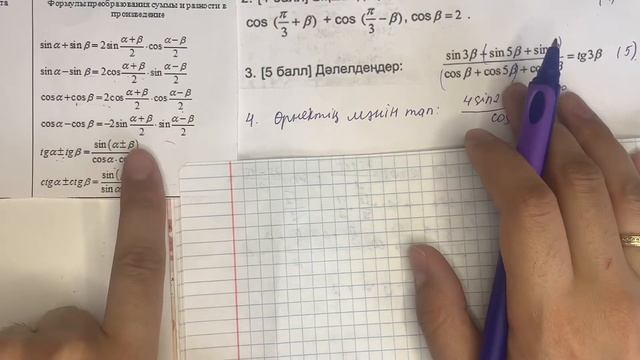 Формулы преобразования суммы и разности в
произведение
sin α + sin β = 2sin (α+β)/2 · cos (α−β)/2
sin α − sin β = 2cos (α+β)/2 · sin (α−β)/2
cos α + cos β = 2cos (α+β)/2 · cos (α−β)/2
cos α − cos β = −2sin (α+β)/2 · sin (α−β)/2
tg α ± tg β = sin(α ± β)/cos α ·
ctg α ± ctg β = sin(
cos (π/3 + β) + cos (π/3 − β), cos β = 2 .
3. [5 балл] Дәлелдеңдер: (sin 3β + sin 5β + sin)/(cos β + cos 5β + ) = tg3β (5)
4. Өрнектің мәнін тап: 4 sin2